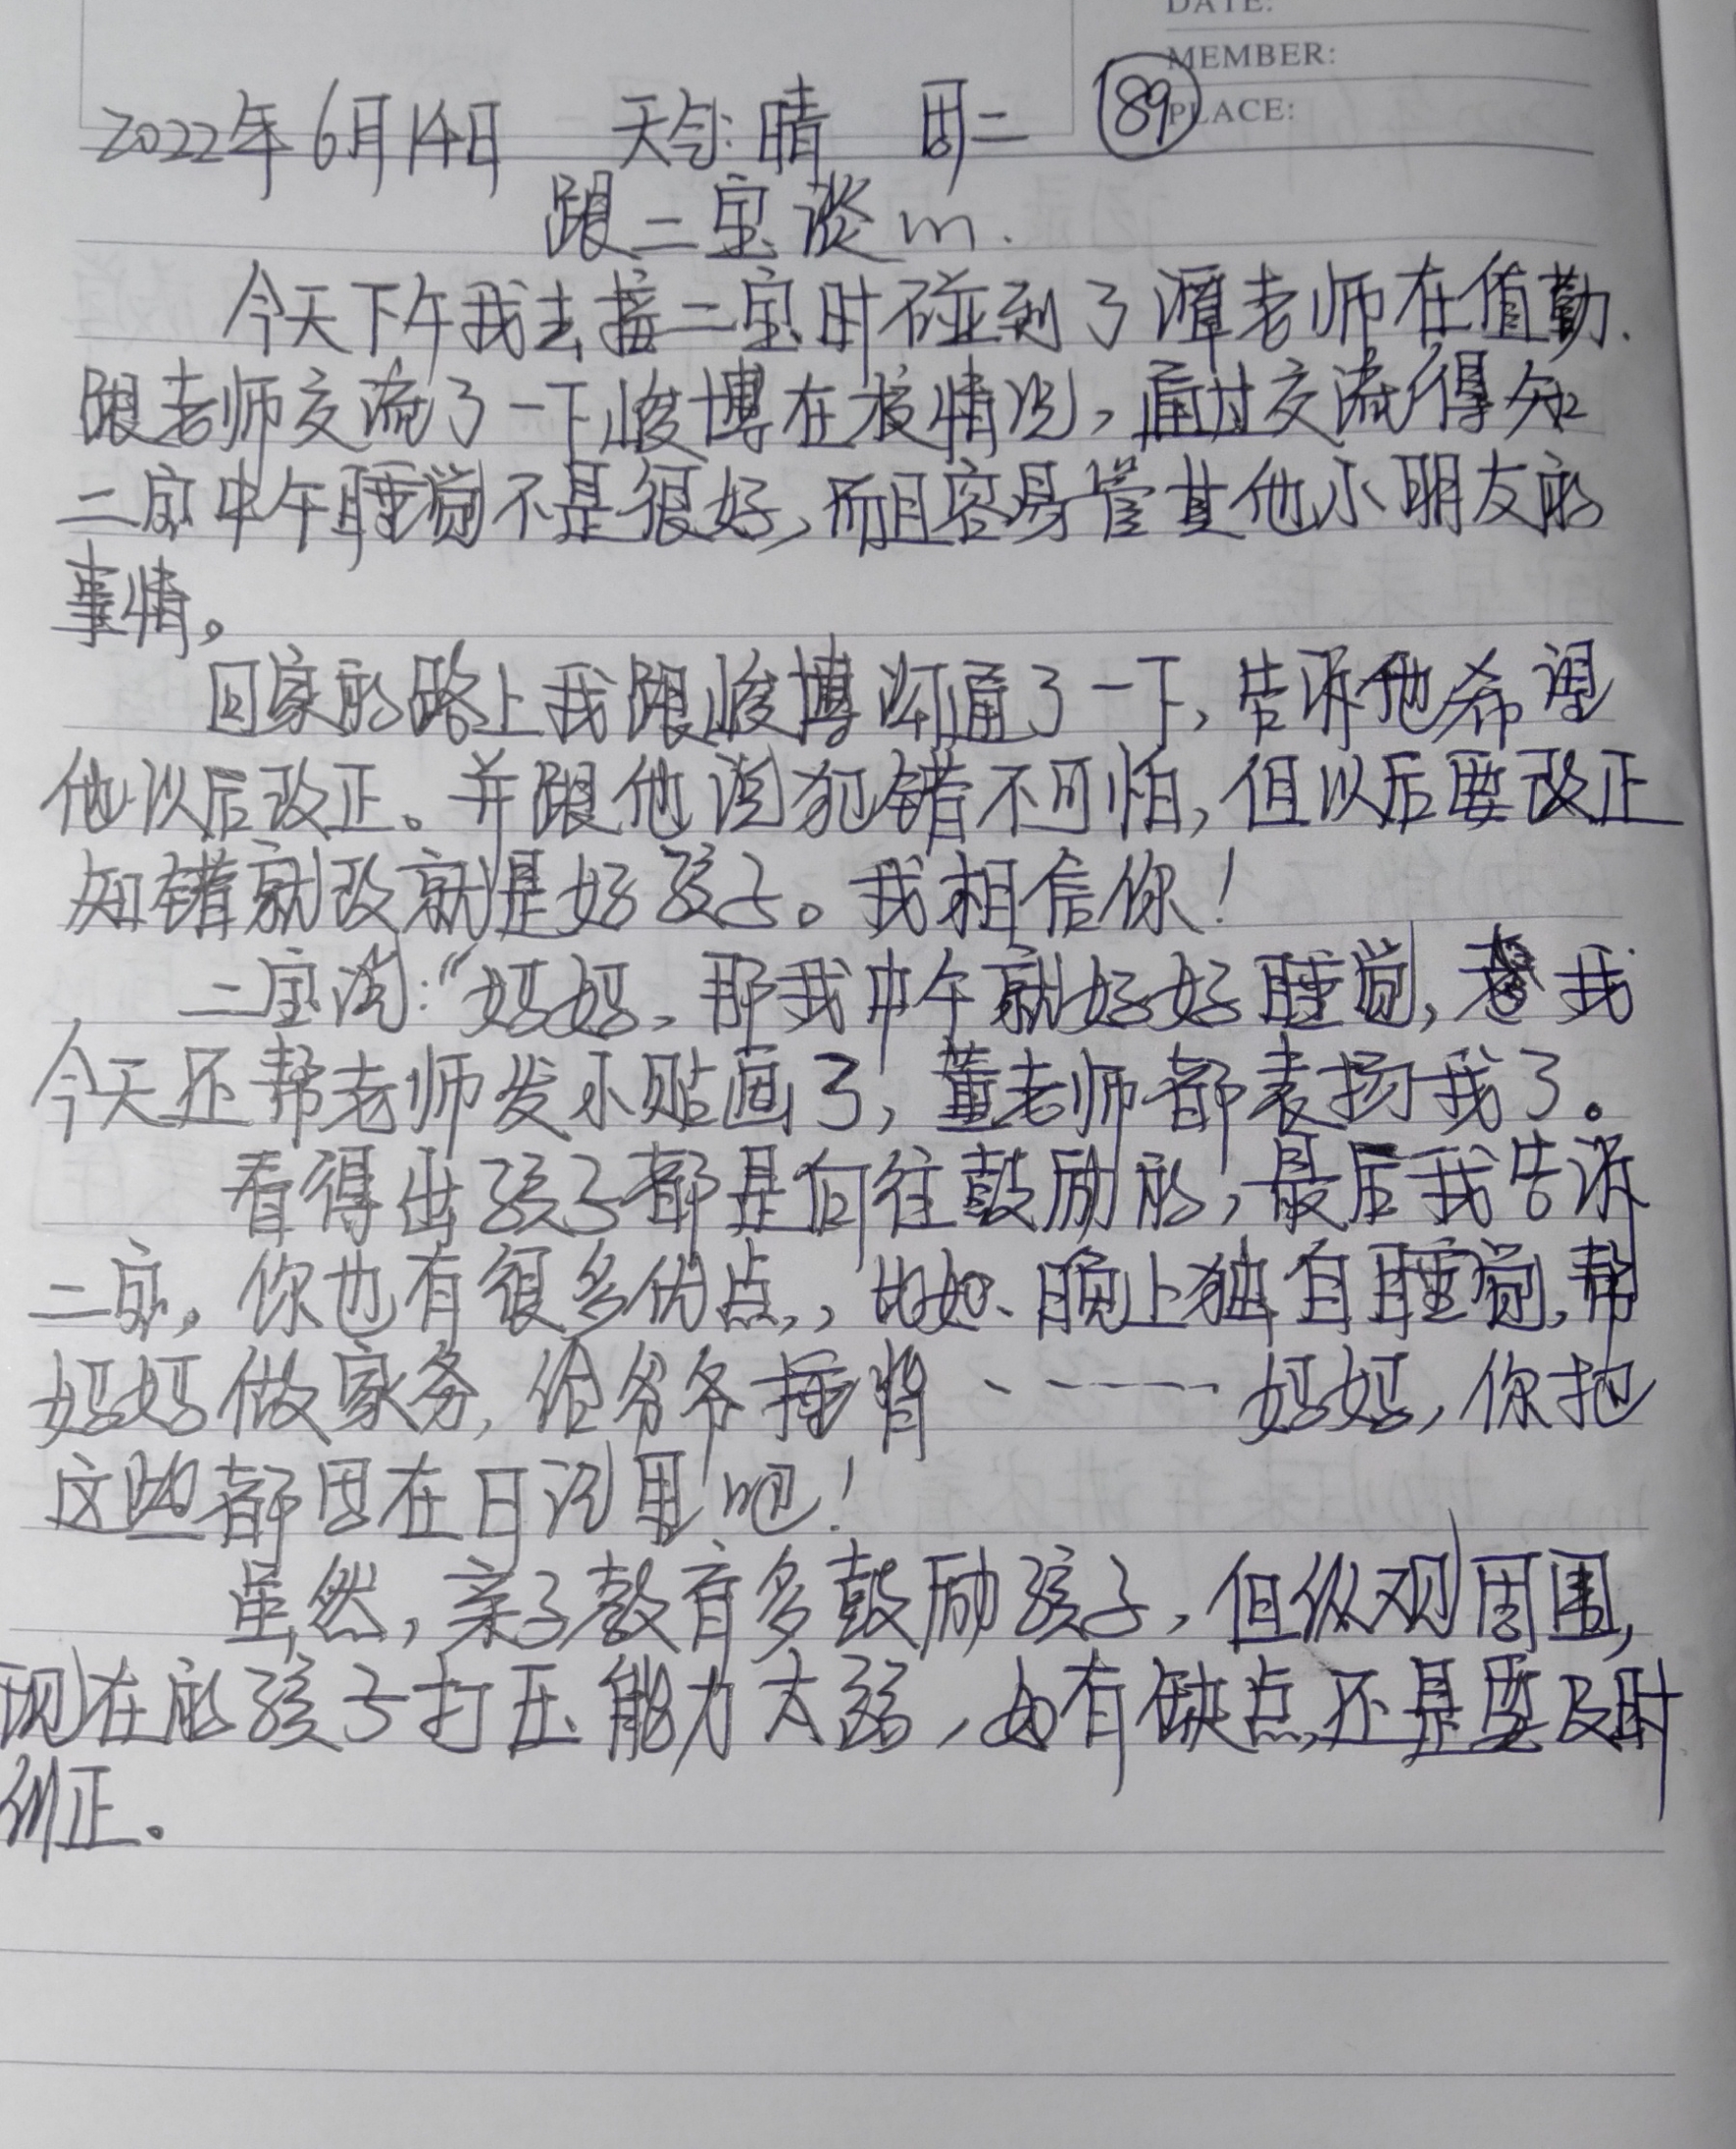 DATE:
MEMBER:
PLACE:
2022年6月14日 天气:晴 周二 89
跟二宝谈心.
今天下午我去接二宝时碰到了潭老师在值勤.
跟老师交流了一下峻博在校情况,通过交流得知
二宝中午睡觉不是很好,而且容易管其他小朋友的
事情。
回家的路上我跟峻博沟通了一下,告诉他希望
他以后改正。并跟他说犯错不可怕,但以后要改正
知错就改就是好孩子。我相信你!
二宝说:“妈妈,那我中午就好好睡觉,我
今天还帮老师发小贴画了,董老师都表扬我了。
看得出孩子都是向往鼓励的,最后我告诉
二宝,你也有很多优点,,比如、晚上独自睡觉,帮
妈妈做家务,给爷爷捶背……妈妈,你把
这些都写在日记里吧!
虽然,亲子教育多鼓励孩子,但纵观周围,
现在的孩子打压能力太弱,如有缺点,还是要及时
纠正。